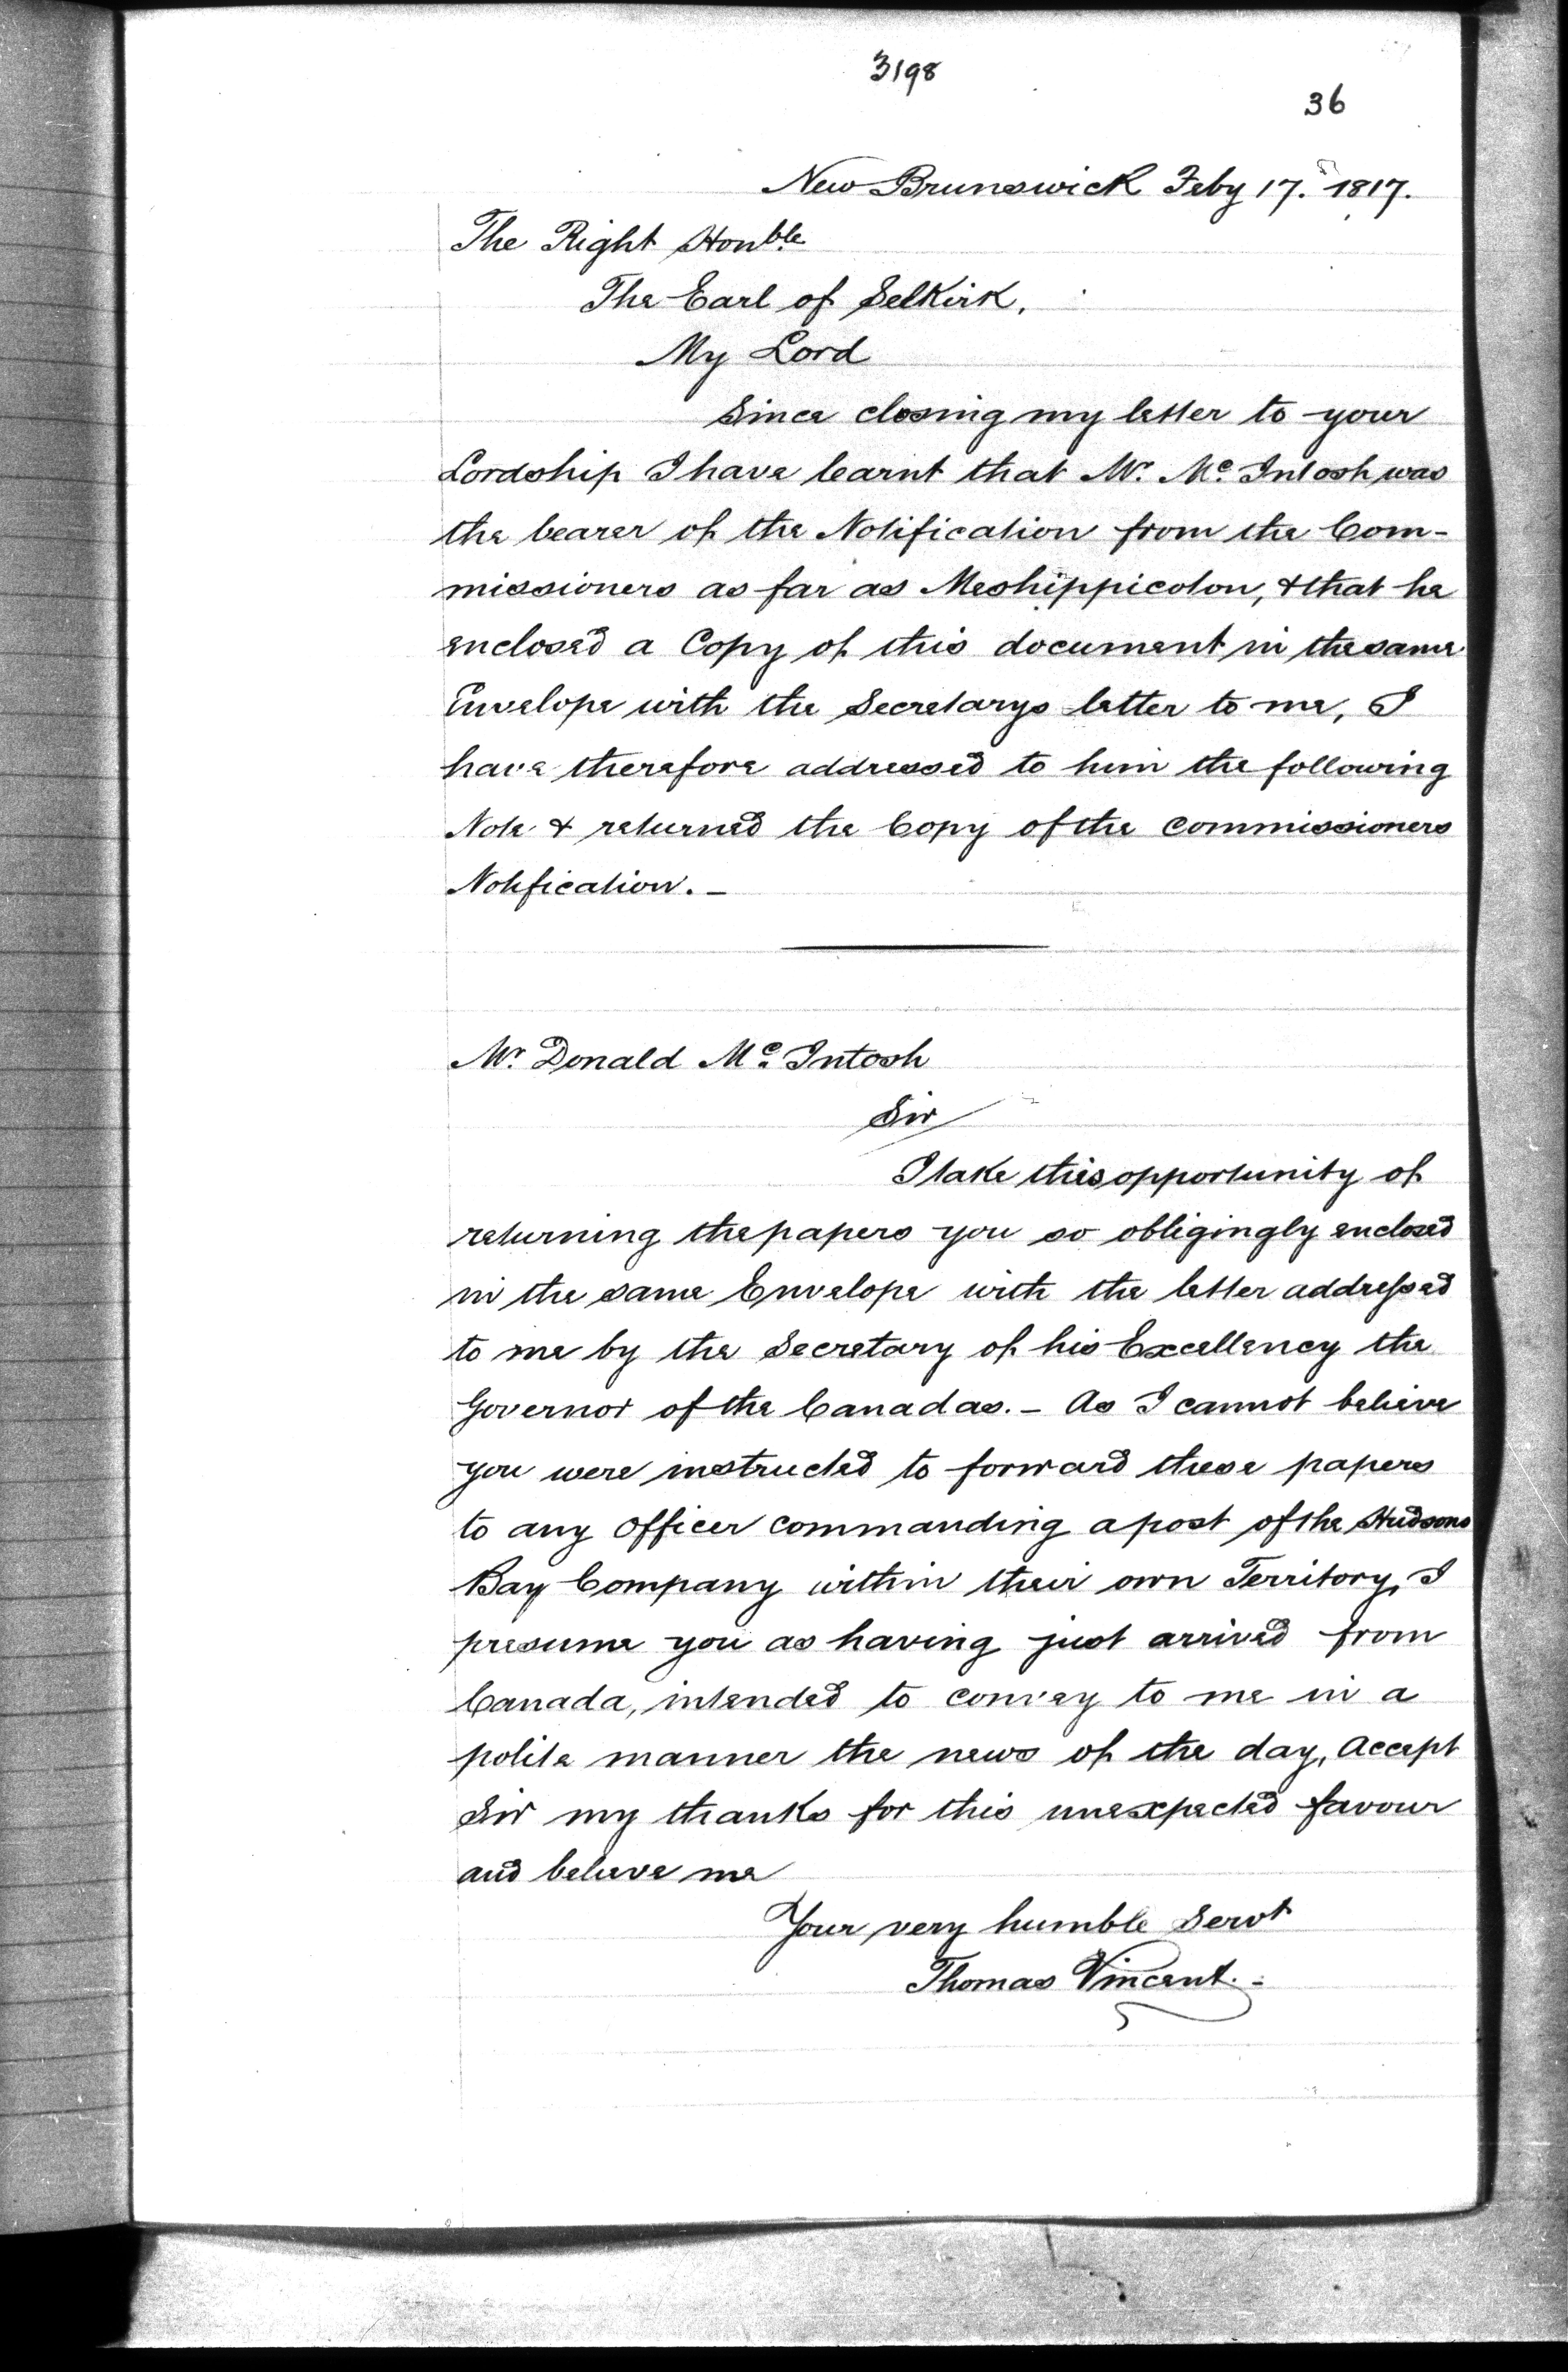 3198
36
New Brunswick Feby 17. 1817.
The Right Honble
The Earl of Selkirk,
My Lord
Since closing my letter to your
Lordship I have learnt that Mr. Mc. Intosh was
the bearer of the Notification from the Com-
missioners as far as Meshippicoton, & that he
enclosed a Copy of this document in the same
Envelope with the Secretarys letter to me, I
have therefore addressed to him the following
Note & returned the Copy of the commissioners
Notification. -
Mr. Donald Mc. Intosh
Sir
I take this opportunity of
returning the papers you so obligingly enclosed
in the same Envelope with the letter addressed
to me by the Secretary of his Excellency the
Governor of the Canadas. - As I cannot believe
you were instructed to forward these papers
to any Officer commanding a post of the Hudsons
Bay Company within their own Territory, I
presume you as having just arrived from
Canada, intended to convey to me in a
polite manner the news of the day, Accept
Sir my thanks for this unexpected favour
and believe me
Your very humble Servt
Thomas Vincent. -